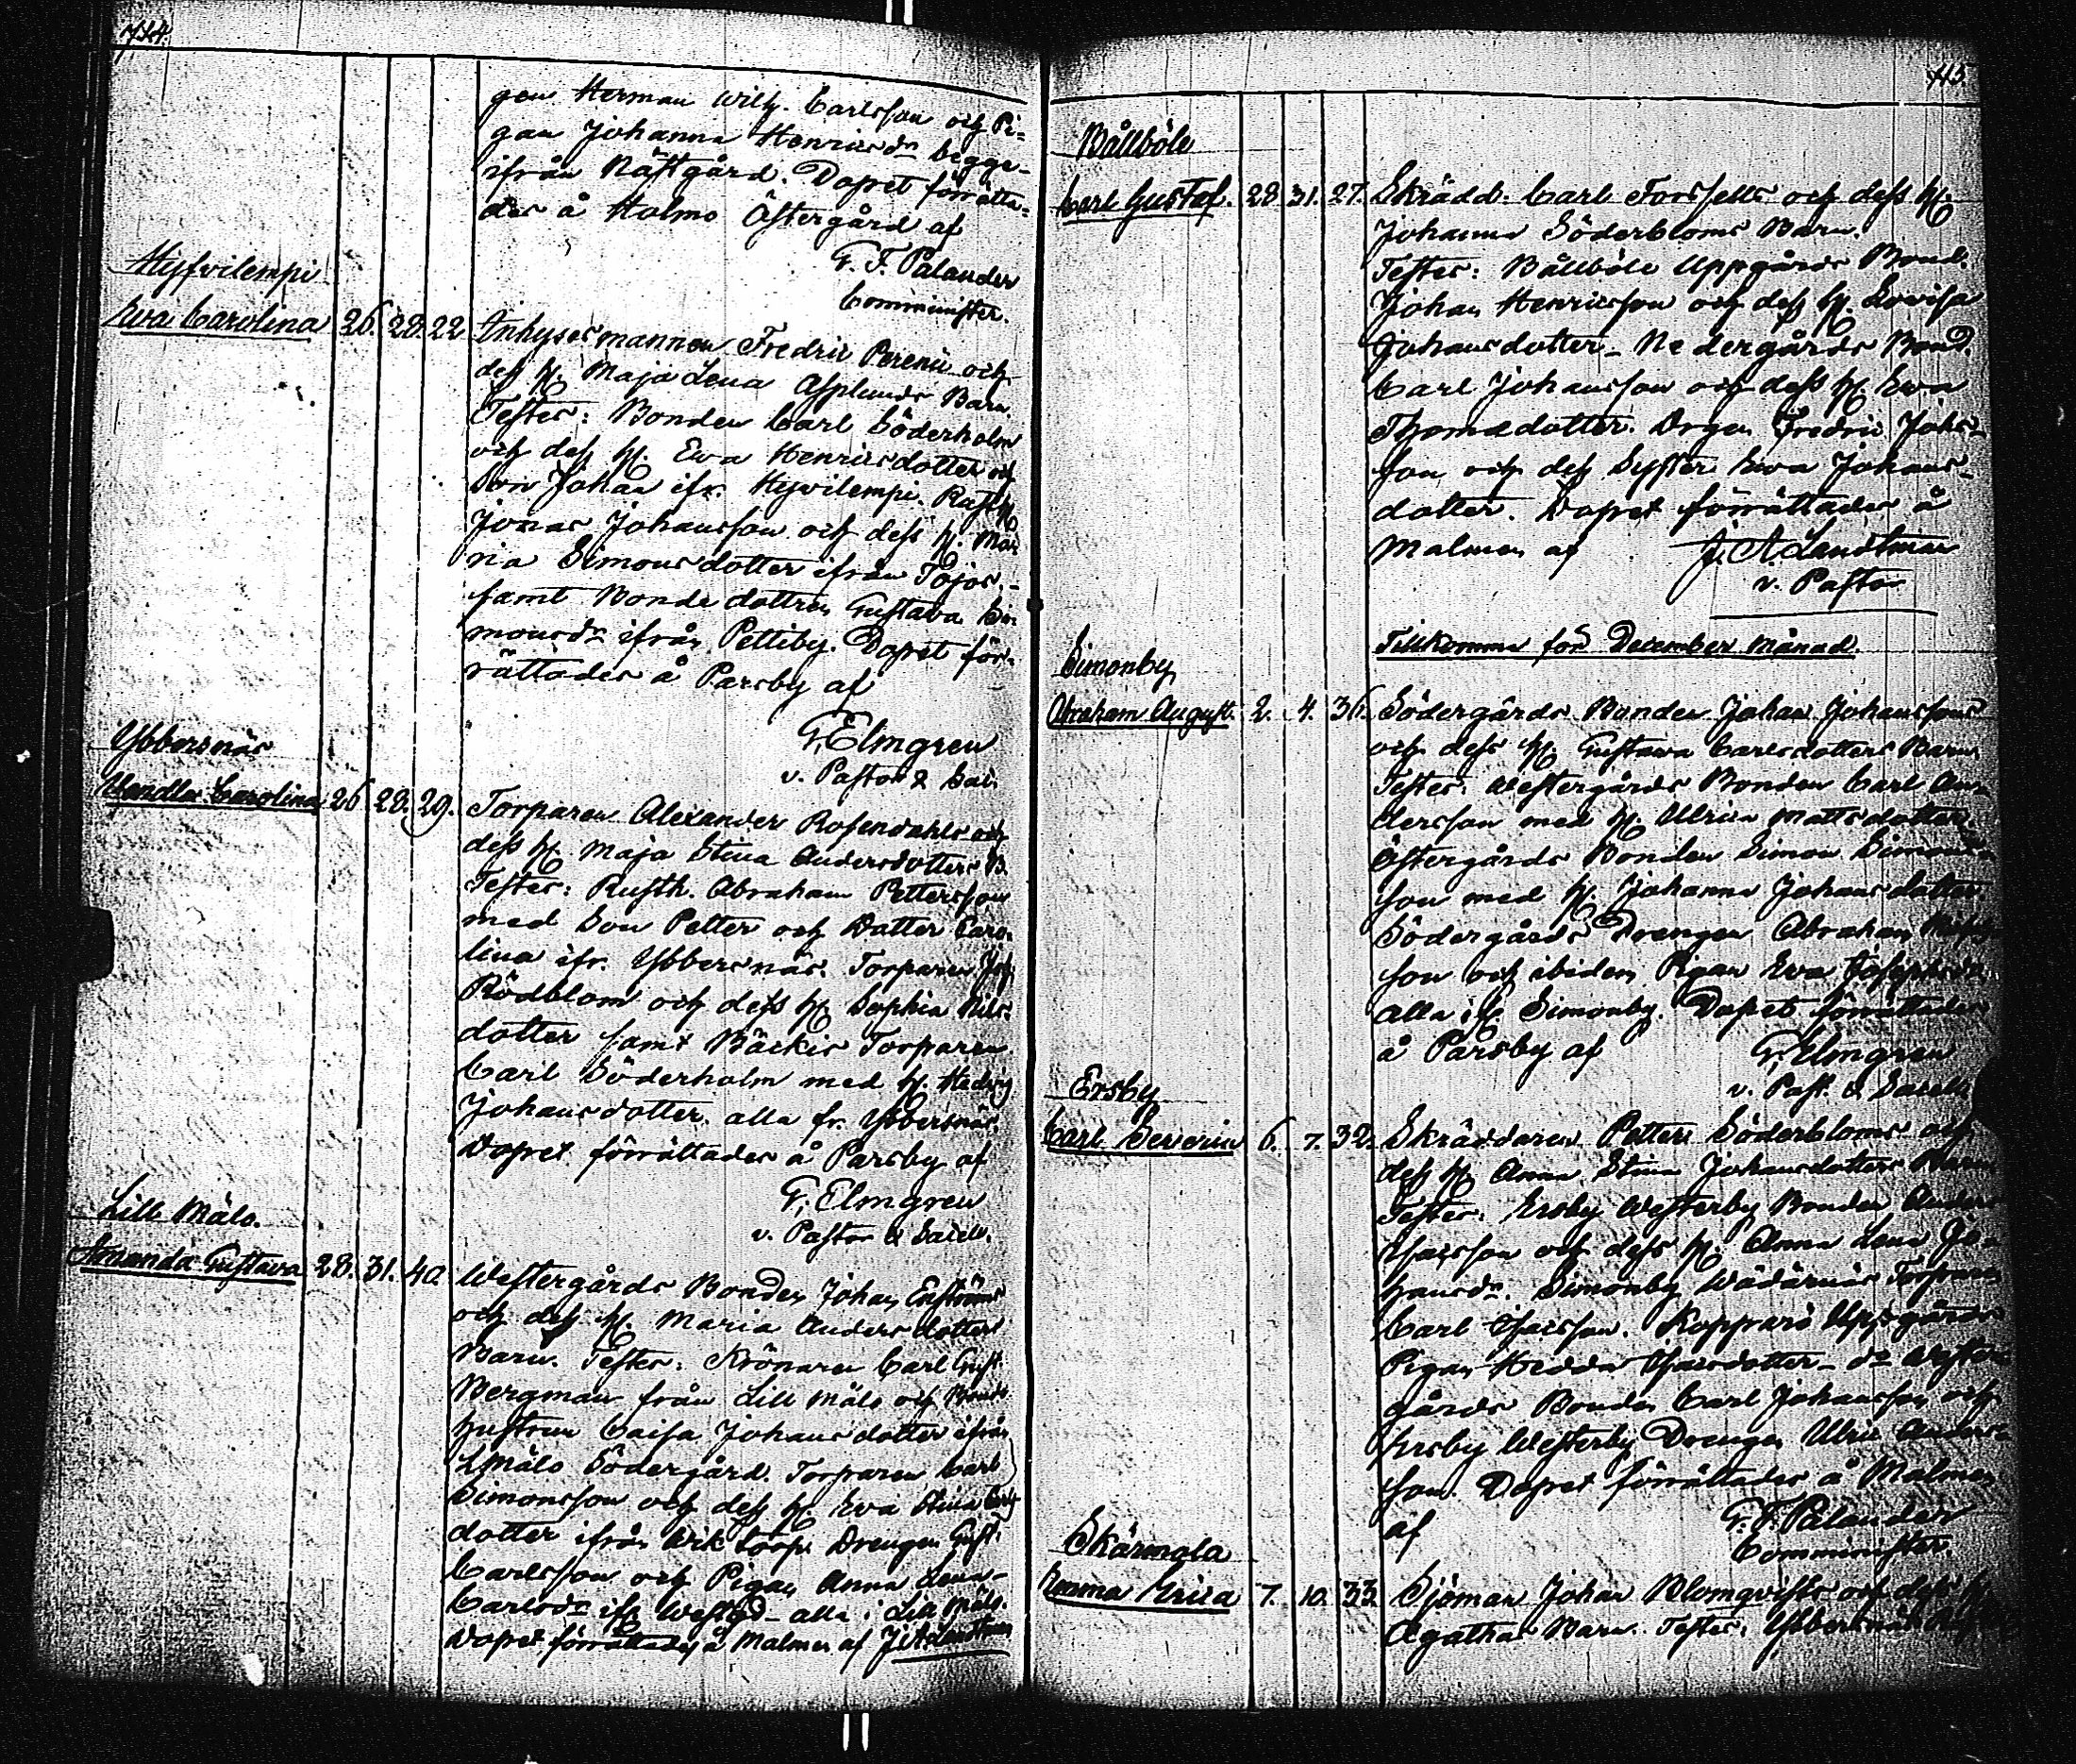 714.
gen Herman Wilh. Carlsson och Pi=
gan Johanna Henricsdr begge-
ifrån Nästgård. Dopet förrätta=
des å Holmo Östergård af
G. F. Palander
Comminister.
Hyfvilempi
Eva Carolina 26. 28. 22 Inhysesmannen Fredric Perenii och
dess h. Maja Lena Asplunds Barn.
Testes: Bonden Carl Söderholm
och dess h. Ewa Henricsdotter och
Son Johan ifr. Hyvilempi. Rusth
Jonas Johansson och dess h. Ma
ria Simonsdotter ifrån Pojos,-
samt Bonde dottren Gustava Si-
monsdr ifrån Pettiby. Dopet för-
rättades å Parsby af
G. Elmgren
v. Pastor & Sac.
Ybbersnäs
Wendla Carolina 26 28. 29. Torparen Alexander Rosendahls och
dess h. Maja Stina Andersdotters B.
Testes: Rusth. Abraham Pettersson
med Son Petter och Dotter Caro-
lina ifr. Ybbersnäs. Torparen Joh.
Rödblom och dess h. Sophia Nils-
dotter samt Bäckis Torparen
Carl Söderholm med h. Hedvig
Johansdotter. alla fr. Ybbersnäs.
Dopet förrättades å Parsby af
G. Elmgren
v. Pastor & Sacell.
Lill Mälo.
Amanda Gustava 28. 31. 40 Westergårds Bonden Johan Enströms
och dess h. Maria Andersdotters
Barn. Testes: Krönaren Carl Gust.
Bergman från Lill Mälo och Bonde
hustrun Caisa Johansdotter ifrån
L Mälo Södergård. Torparen Carl
Simonsson och dess h. Eva Stina Carls
dotter ifrån Wik torp. Drengen Gust.
Carlsson och Pigan Anna Lena-
Carlsdr ifr Westgd- alla i Lill Mälo.
Dopet förrättades å Malmen af J A Landtman
715
Bållböle
Carl Gustaf. 28 31. 27. Skrädd. Carl Forssells och dess h.
Johanna Söderbloms Barn.
Testes: Bållböle Uppgårds Bond.
Johan Henricsson och dess h. Lovisa
Johansdotter- Nedergårds Bond.
Carl Johansson och dess h. Ewa
Thomasdotter. Drgen Fredric Johs-
son och dess Syster Ewa Johans-
dotter. Dopet förrättades å
Malmen af J. A. Landtman
v. Pastor
Tillkomma för December Månad
Simonby
Abraham August. 2. 4. 36. Södergårds Bonden Johan Johanssons
och dess h. Gustava Carlsdotters Barn
Testes: Westergårds Bonden Carl An-
dersson med h. Ulrica Mattsdotter
Östergårds Bonden Simon Simons-
son med h. Johanna Johansdotter
Södergårds Drengen Abraham
son och ibidem Pigan Ewa Josephsdr
alla ifr. Simonby. Dopet förrättades
å Parsby af G. Elmgren
v. Past. & Sacell.
Ersby
Carl Severin 6. 7. 32. Skräddaren Petter Söderbloms och
dess h. Anna Stina Johansdotters Barn
Testes: Ersby Westerby Bonden Anders
Isacsson och dess h. Anna Lena Jo
hansdr. Simonby Wädärnäs Torparen
Carl Isacsson. Kopparö Uppgårds
Pigan Hedda Isacsdotter- do Wester
gårds Bonden Carl Johansson och
Ersby Westerby Drengen Ulric Anders-
son. Dopet förrättades å Malmen
af G. F. Palander
Comminister.
Skärmola
Emma Erica 7. 10. 33 Sjöman Johan Blomqvists och dess h.
Agathas Barn. Testes: Ybbersnäs